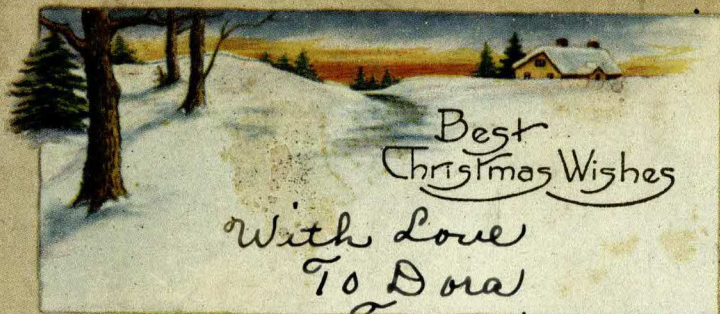 Best
Christmas Wishes
With Love
To Dora